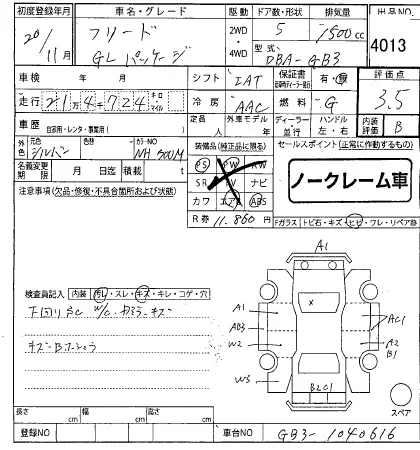 初度登録年月 車名・グレード 駆動 ドア数・形状 排気量 出品NO.
20/11月 フリード GLパッケージ 2WD・4WD 5 1500cc 4013
型式 DBA-GB3
車検 年 月 シフト IAT 保証書 有・無 評価点
走行 21万4千724キロ マイル 冷房 AAC 燃料 G 3.5
車歴 自家用・レンタ・事業用( ) 定員 人 外車モデル 年 ディーラー 並行 ハンドル 左・右 内装評価 B
外色 元色 シルバー 色替 カラーNO NH 700M 装備品(純正品に限る) セールスポイント(正常に作動するもの)
名義変更期限 月 日迄 積載 t PS PW ノークレーム車
注意事項(欠品・修復・不具合箇所および状態) SR TV ナビ
カワ エアB ABS
R券 11,860円 Fガラス トビ石・キズ・ヒビ・ワレ・リペア跡
検査員記入 内装 汚レ・スレ・キズ・キレ・コゲ・穴
下回りSC W/C.
A1
A1
A03
W2
W3
AC1
A2
B1
B2C1
スペア
長さ cm 幅 cm 高さ cm
登録NO 車台NO GB3-1040616